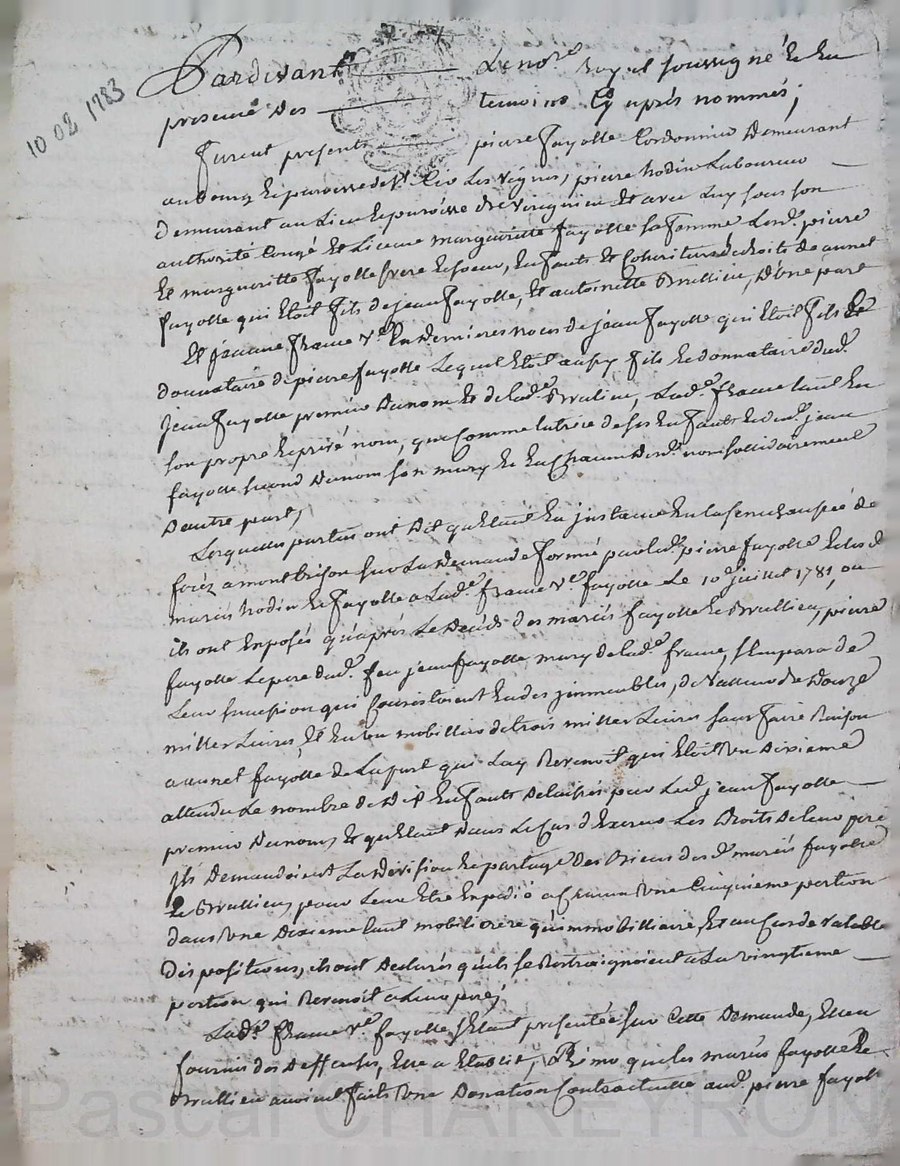 10 02 1783
Pardevant Le no.re Royal soussigné Et En
presence des temoins Cy après nommés;
furent presents pierre fayolle Cordonnier Demeurant
au bourg Et paroisse de st. Les Vignes, pierre hodin Laboureur
demeurant au Lieu Et paroisse de Et avec Luy sous son
authorité Congé Et Licence margueritte fayolle sa femme Lesd. pierre
Et margueritte fayolle frere Et soeur, Enfants Et Coheritiers de droits de annet
fayolle qui Etoit fils de jean fayolle, Et antoinette Brullieu, D'Une part
Et jeanne frame V.e En Dernieres noces de jean fayolle qui Etoit fils Et
donnataire de pierre fayolle Lequel Etoit aussy fils Et donnataire dud.
jean fayolle premier Du nom Et de lad.e Brulieu, Lad.e frame tant En
son propre Et privé nom, que Comme tutrice de ses Enfants Et dud. jean
fayolle second Du nom son mary Et En Chacun Desd. noms sollidairement
D'autre part,
Lesquelles parties ont Dit qu'Etant En instance En la senechaussée de
forez a montbrison sur La Demande formée par led. pierre fayolle Et lesd.
mariés hodin Et fayolle a Lad.e frame V.e fayolle Le 10e juillet 1781, ou
ils ont Exposés qu'après Le Decés des mariés fayolle Et Brullieu, pierre
fayolle Le pere dud. feu jean fayolle mary de lad.e frame, s'Empara de
Leur succession qui Consistoient En des immeubles, de Valleur de Douze
milles Livres, Et En Un mobillier de trois milles Livres sans faire Raison
a annet fayolle de La part qui Luy Revenoit qui Etoit Un Dixieme
attendu Le nombre de Dix Enfants Delaissés par Led. jean fayolle
premier Du nom, Et qu'Etant Dans Le Cas d'Exercer Les Droits de Leur pere
ils Demandoient La Division Et partage Des Biens des d. mariés fayolle
Et Brullieu, pour Leur Etre Expedié a Chacun Une Cinquieme portion
dans Une Dixieme tant mobilierre qu'immobilliaire, Et au Cas de Valable
dispositions, ils ont Declarés qu'ils se Restraignoient a La Vingtieme
portion qui Revenoit a Leur pere;
Lad.e frame V.e fayolle s'Etant presentée sur Cette Demande, Elle a
fourni des Deffenses, Elle a Etablit, P.mo que les mariés fayolle Et
Brullieu avoient faits Une Donation Contractuelle aud. pierre fayol
Pascal CHAREYRON